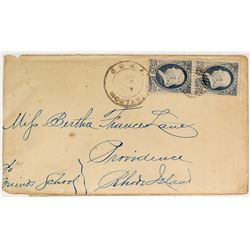 CORA
MONTANA
Miss Bertha Frances Lane
Providence
Rhode Island
Friends School